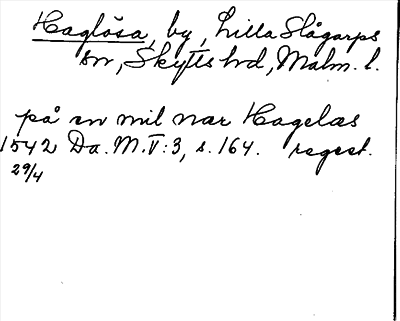 Haglösa, by, Lilla Slågarps
sn, Skytts hd, Malm. l.
på en mil nær Hagelæs
1542 Da. M. V:3, s. 164. regest.
29/4